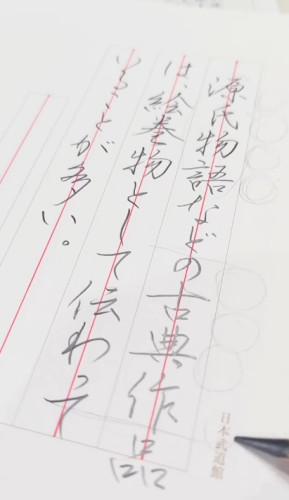 源氏物語などの古典作品
は、絵巻物として伝わって
いることが多い。
日本武道館